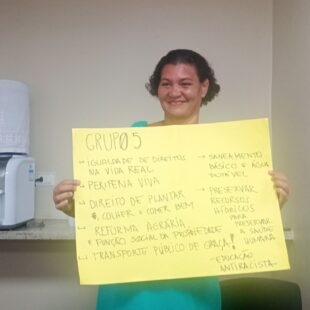 GRUPO 5
- IGUALDADE DE DIREITOS
NA VIDA REAL
- PERIFERIA VIVA
- DIREITO DE PLANTAR
COLHER E COMER BEM
- REFORMA AGRÁRIA
E FUNÇÃO SOCIAL DA PROPRIEDADE
- TRANSPORTE PÚBLICO DE GRAÇA!
- SANEAMENTO
BÁSICO E ÁGUA
POTÁVEL
- PRESERVAR
RECURSOS
HÍDRICOS
PARA
PRESERVAR
A SAÚDE
HUMANA
- EDUCAÇÃO
ANTIRACISTA -